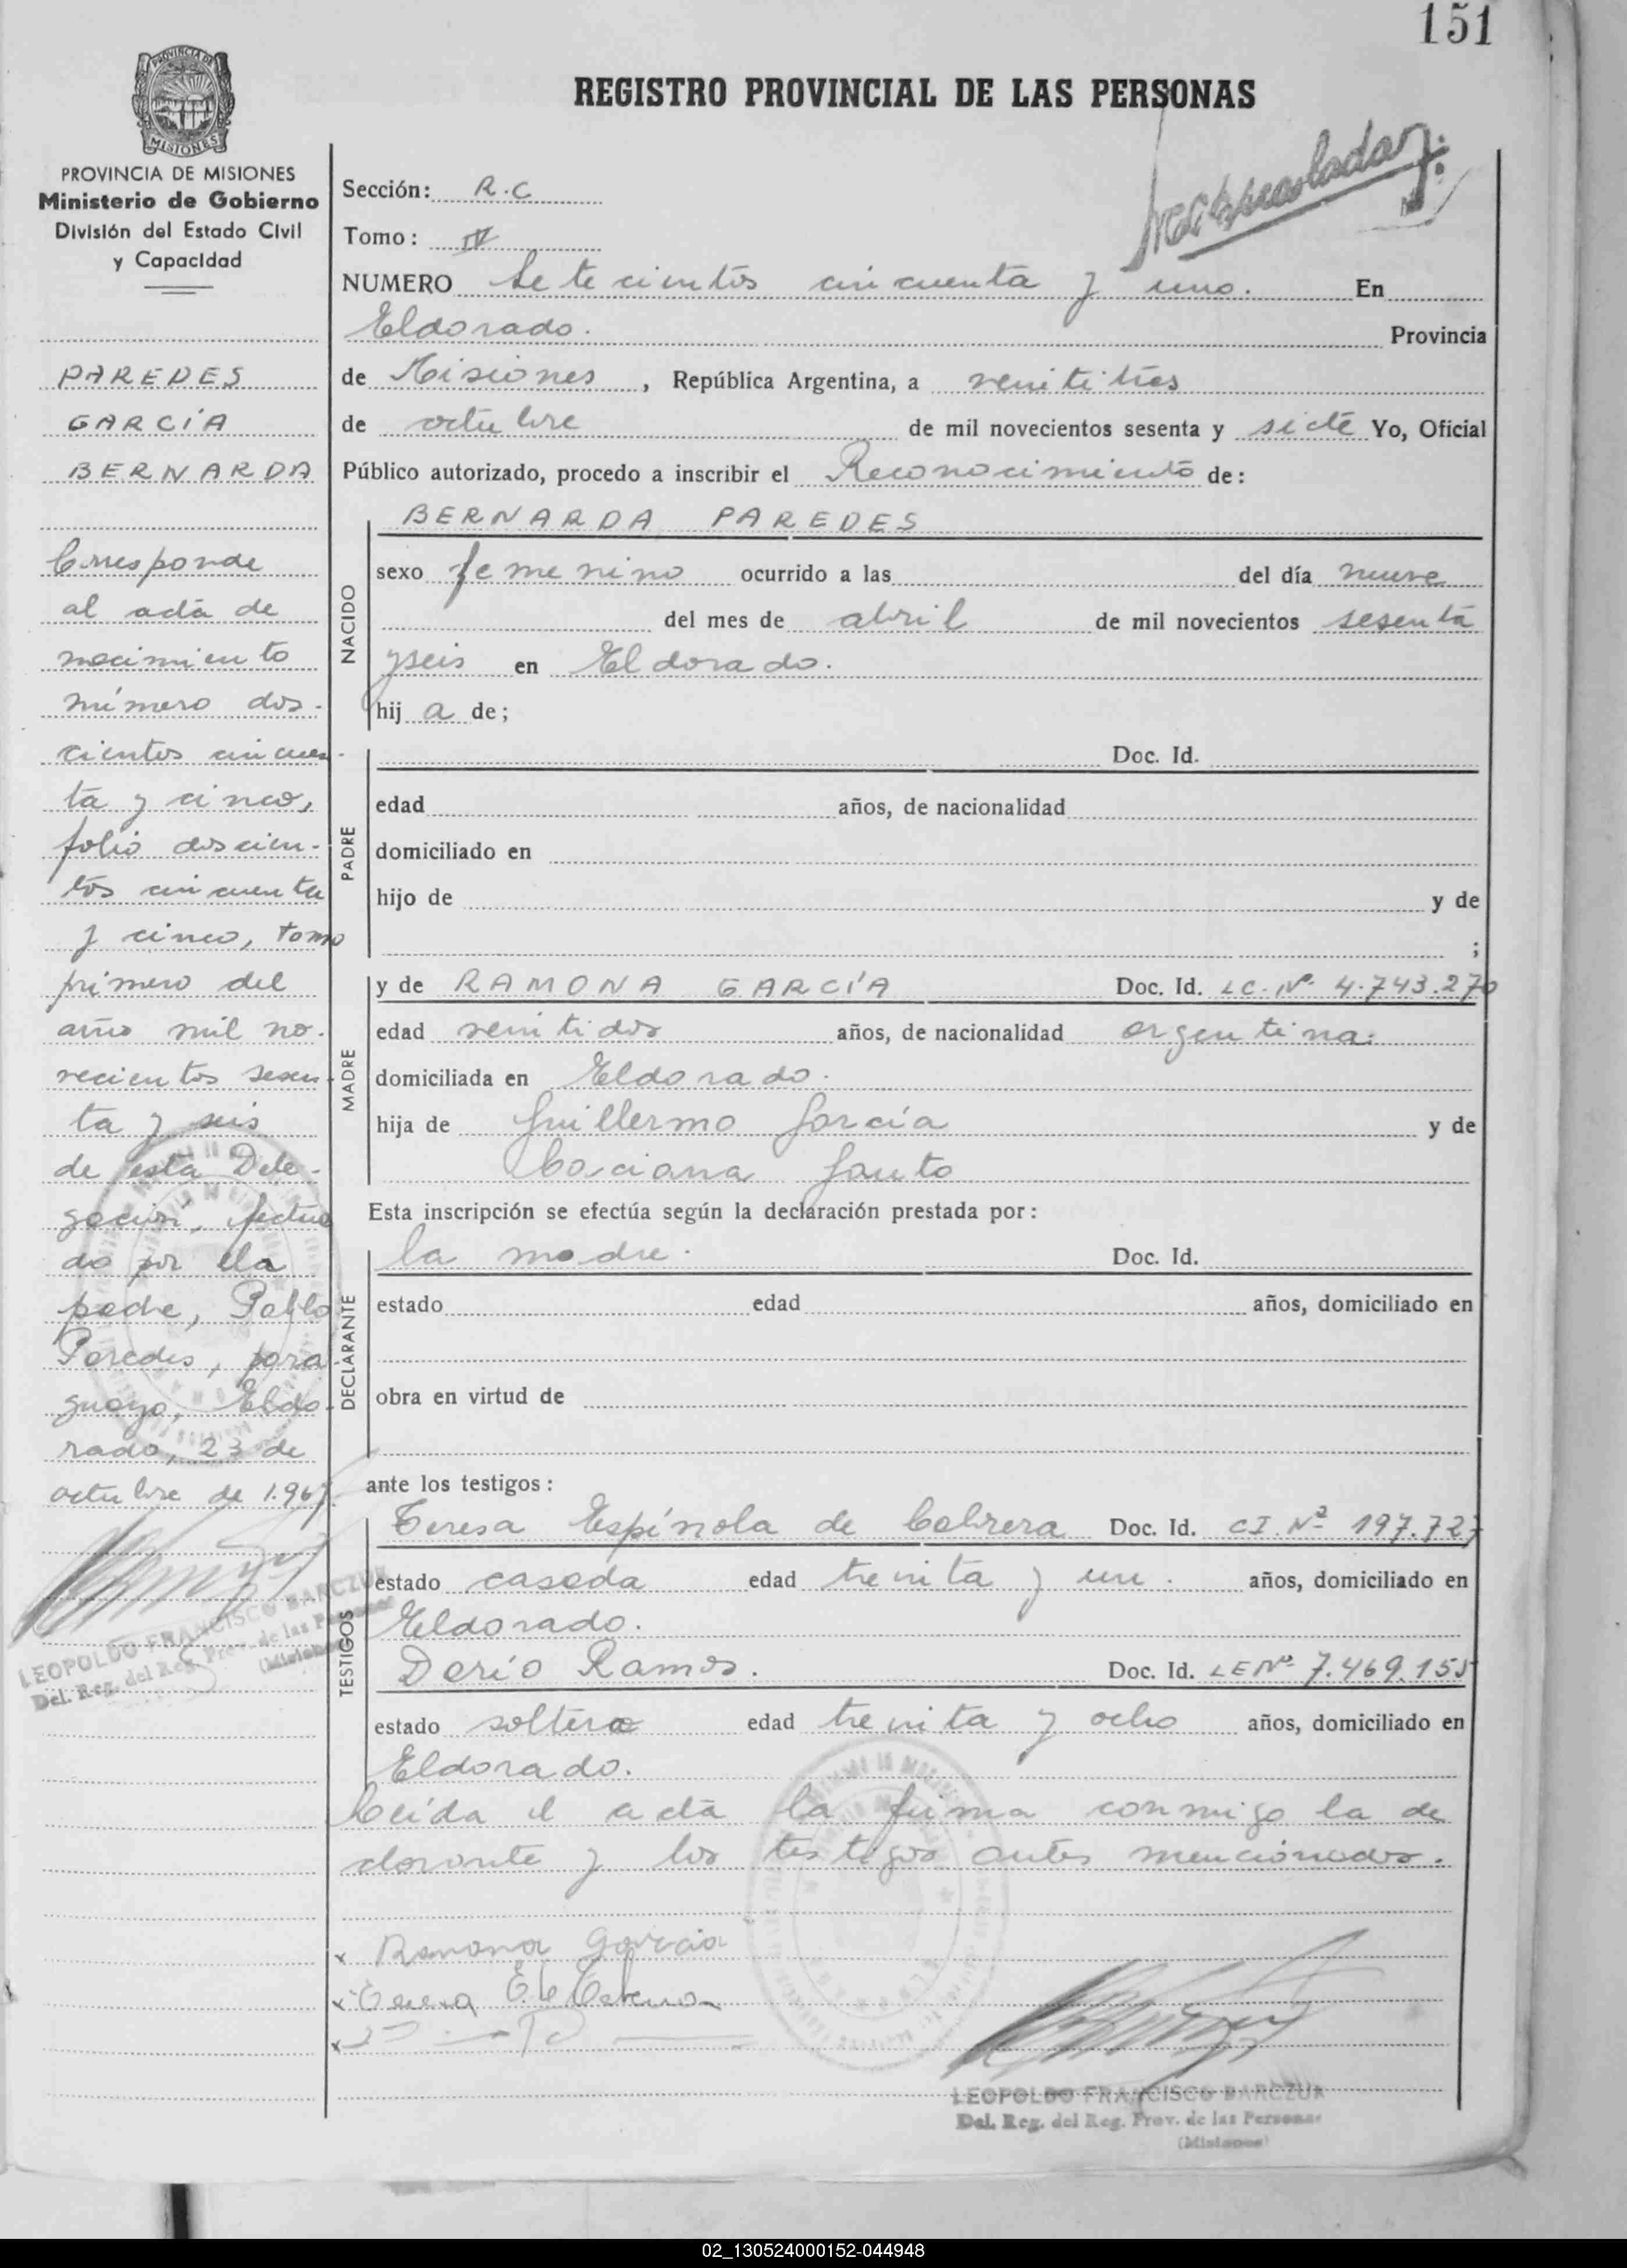 151
REGISTRO PROVINCIAL DE LAS PERSONAS
PROVINCIA DE
MISIONES
PROVINCIA DE MISIONES
Ministerio de Gobierno
División del Estado Civil
y Capacidad
PAREDES
GARCÍA
BERNARDA
Corresponde
al acta de
nacimiento
número dos-
cientos cincuen-
ta y cinco,
folio doscien-
tos cincuenta
y cinco, tomo
primero del
año mil no-
vecientos sesen-
ta y seis
de esta Dele-
gación, efectua
do por ela
padre, Pablo
Paredes, para
guayo, Eldo-
rado, 23 de
octubre de 1.967.
LEOPOLDO FRANCISCO BARCZUK
Del. Reg. del Reg. Prov. de las Personas
(Misiones)
Sección: R.C
Tomo: IV
NUMERO Setecientos cincuenta y uno. En
Eldorado. Provincia
de Misiones, República Argentina, a veintitrés
de octubre de mil novecientos sesenta y siete Yo, Oficial
Público autorizado, procedo a inscribir el Reconocimiento de:
NACIDO
BERNARDA PAREDES
sexo femenino ocurrido a las del día nueve
del mes de abril de mil novecientos sesenta
y seis en Eldorado.
hij a de;
PADRE
Doc. Id.
edad años, de nacionalidad
domiciliado en
hijo de y de
;
MADRE
y de RAMONA GARCÍA Doc. Id. LC. Nº 4.743.270
edad veintidos años, de nacionalidad argentina.
domiciliada en Eldorado.
hija de Guillermo García y de
Esta inscripción se efectúa según la declaración prestada por:
DECLARANTE
la madre. Doc. Id.
estado edad años, domiciliado en
obra en virtud de
ante los testigos:
TESTIGOS
Teresa Espínola de Cabrera Doc. Id. CI. Nº 197.727
estado casada edad treinta y un. años, domiciliado en
Eldorado.
Darío Ramos. Doc. Id. LE Nº 7.469.155
estado soltero edad treinta y ocho años, domiciliado en
Eldorado.
Leída el acta la firma conmigo la de
clarante y los testigos antes mencionados.
x Ramona Garcia
x Teresa E. de Cabrera
x
LEOPOLDO FRANCISCO BARCZUK
Del. Reg. del Reg. Prov. de las Personas
(Misiones)
02_130524000152-044948